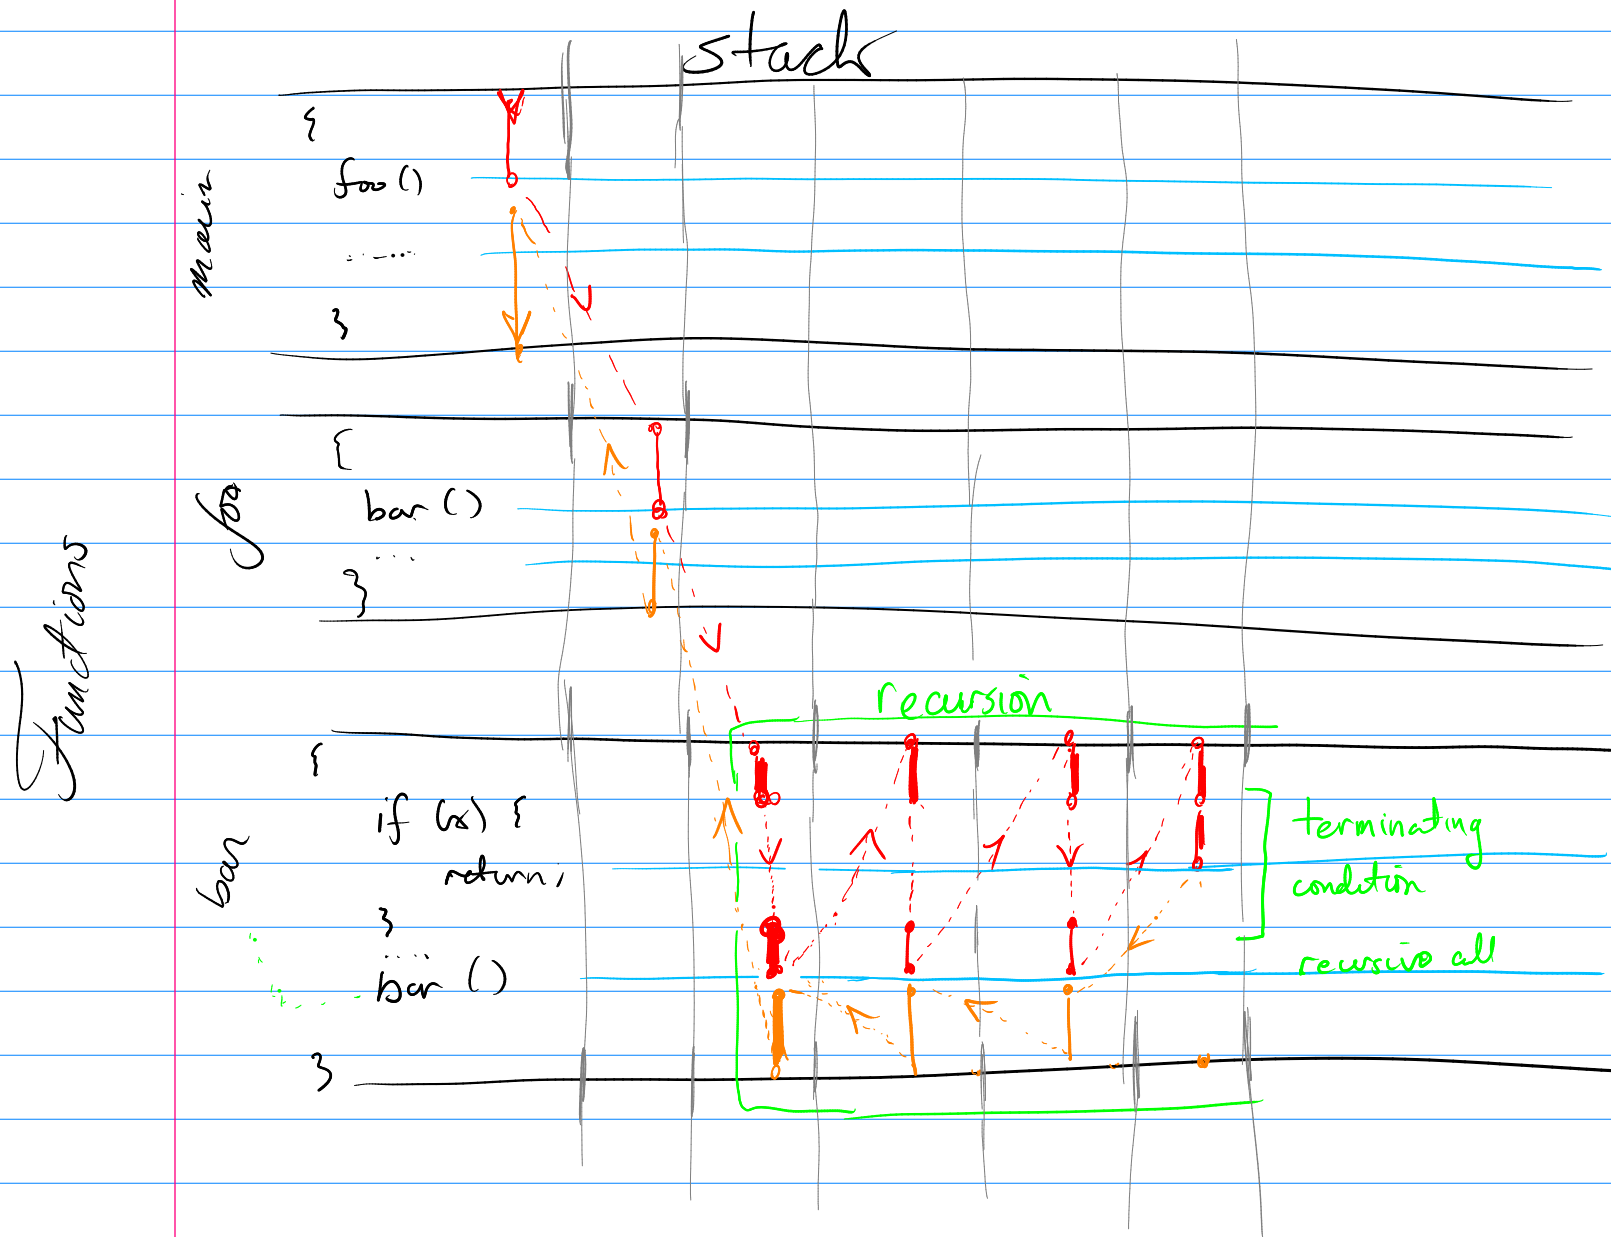 stack
Functions
main
{
foo ()
......
}
foo
{
bar ()
...
}
recursion
bar
{
if (x) {
return;
}
....
bar ()
}
terminating
condition
recursive all